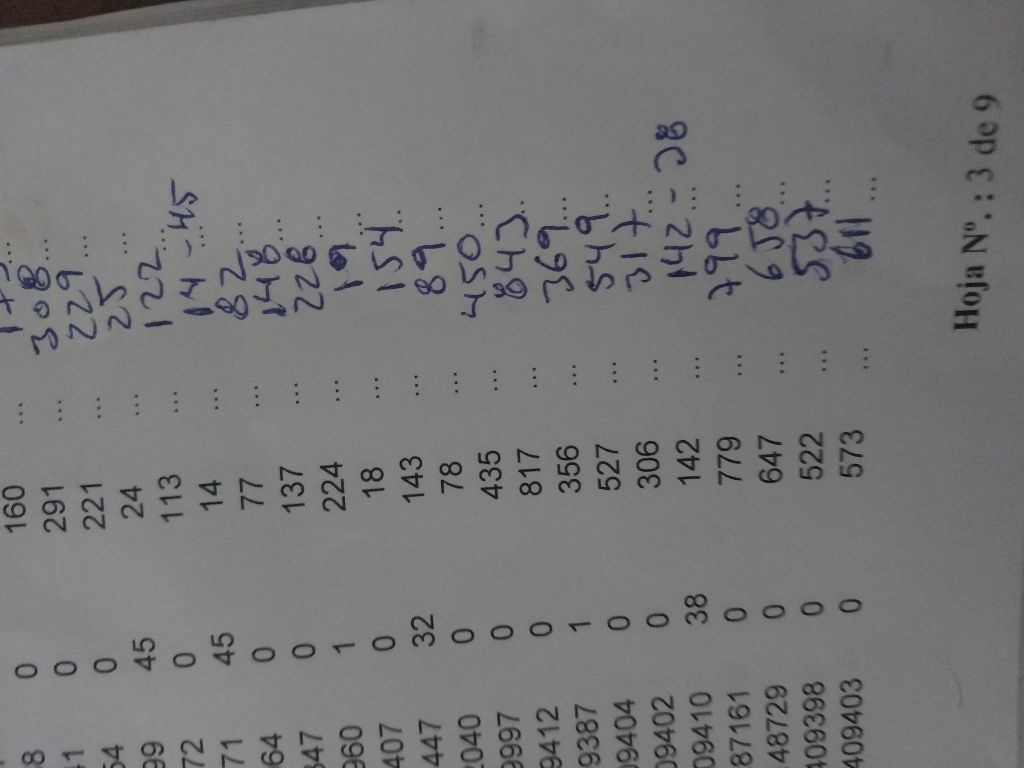 8 0 160 ...
41 0 291 ... 308 ...
64 0 221 ... 229 ...
99 45 24 ... 25 ...
72 0 113 ... 122 ...
71 45 14 ... 14 - 45
064 0 77 ... 82 ...
347 0 137 ... 148 ...
960 1 224 ... 228 ...
407 0 18 ... 19 ...
447 32 143 ... 154 ...
2040 0 78 ... 89 ...
9997 0 435 ... 450 ...
9412 0 817 ... 843 ...
9387 1 356 ... 369 ...
09404 0 527 ... 549 ...
09402 0 306 ... 317 ...
09410 38 142 ... 142 - 38
87161 0 779 ... 799 ...
48729 0 647 ... 658 ...
409398 0 522 ... 537 ...
409403 0 573 ... 611 ...
Hoja Nº. : 3 de 9